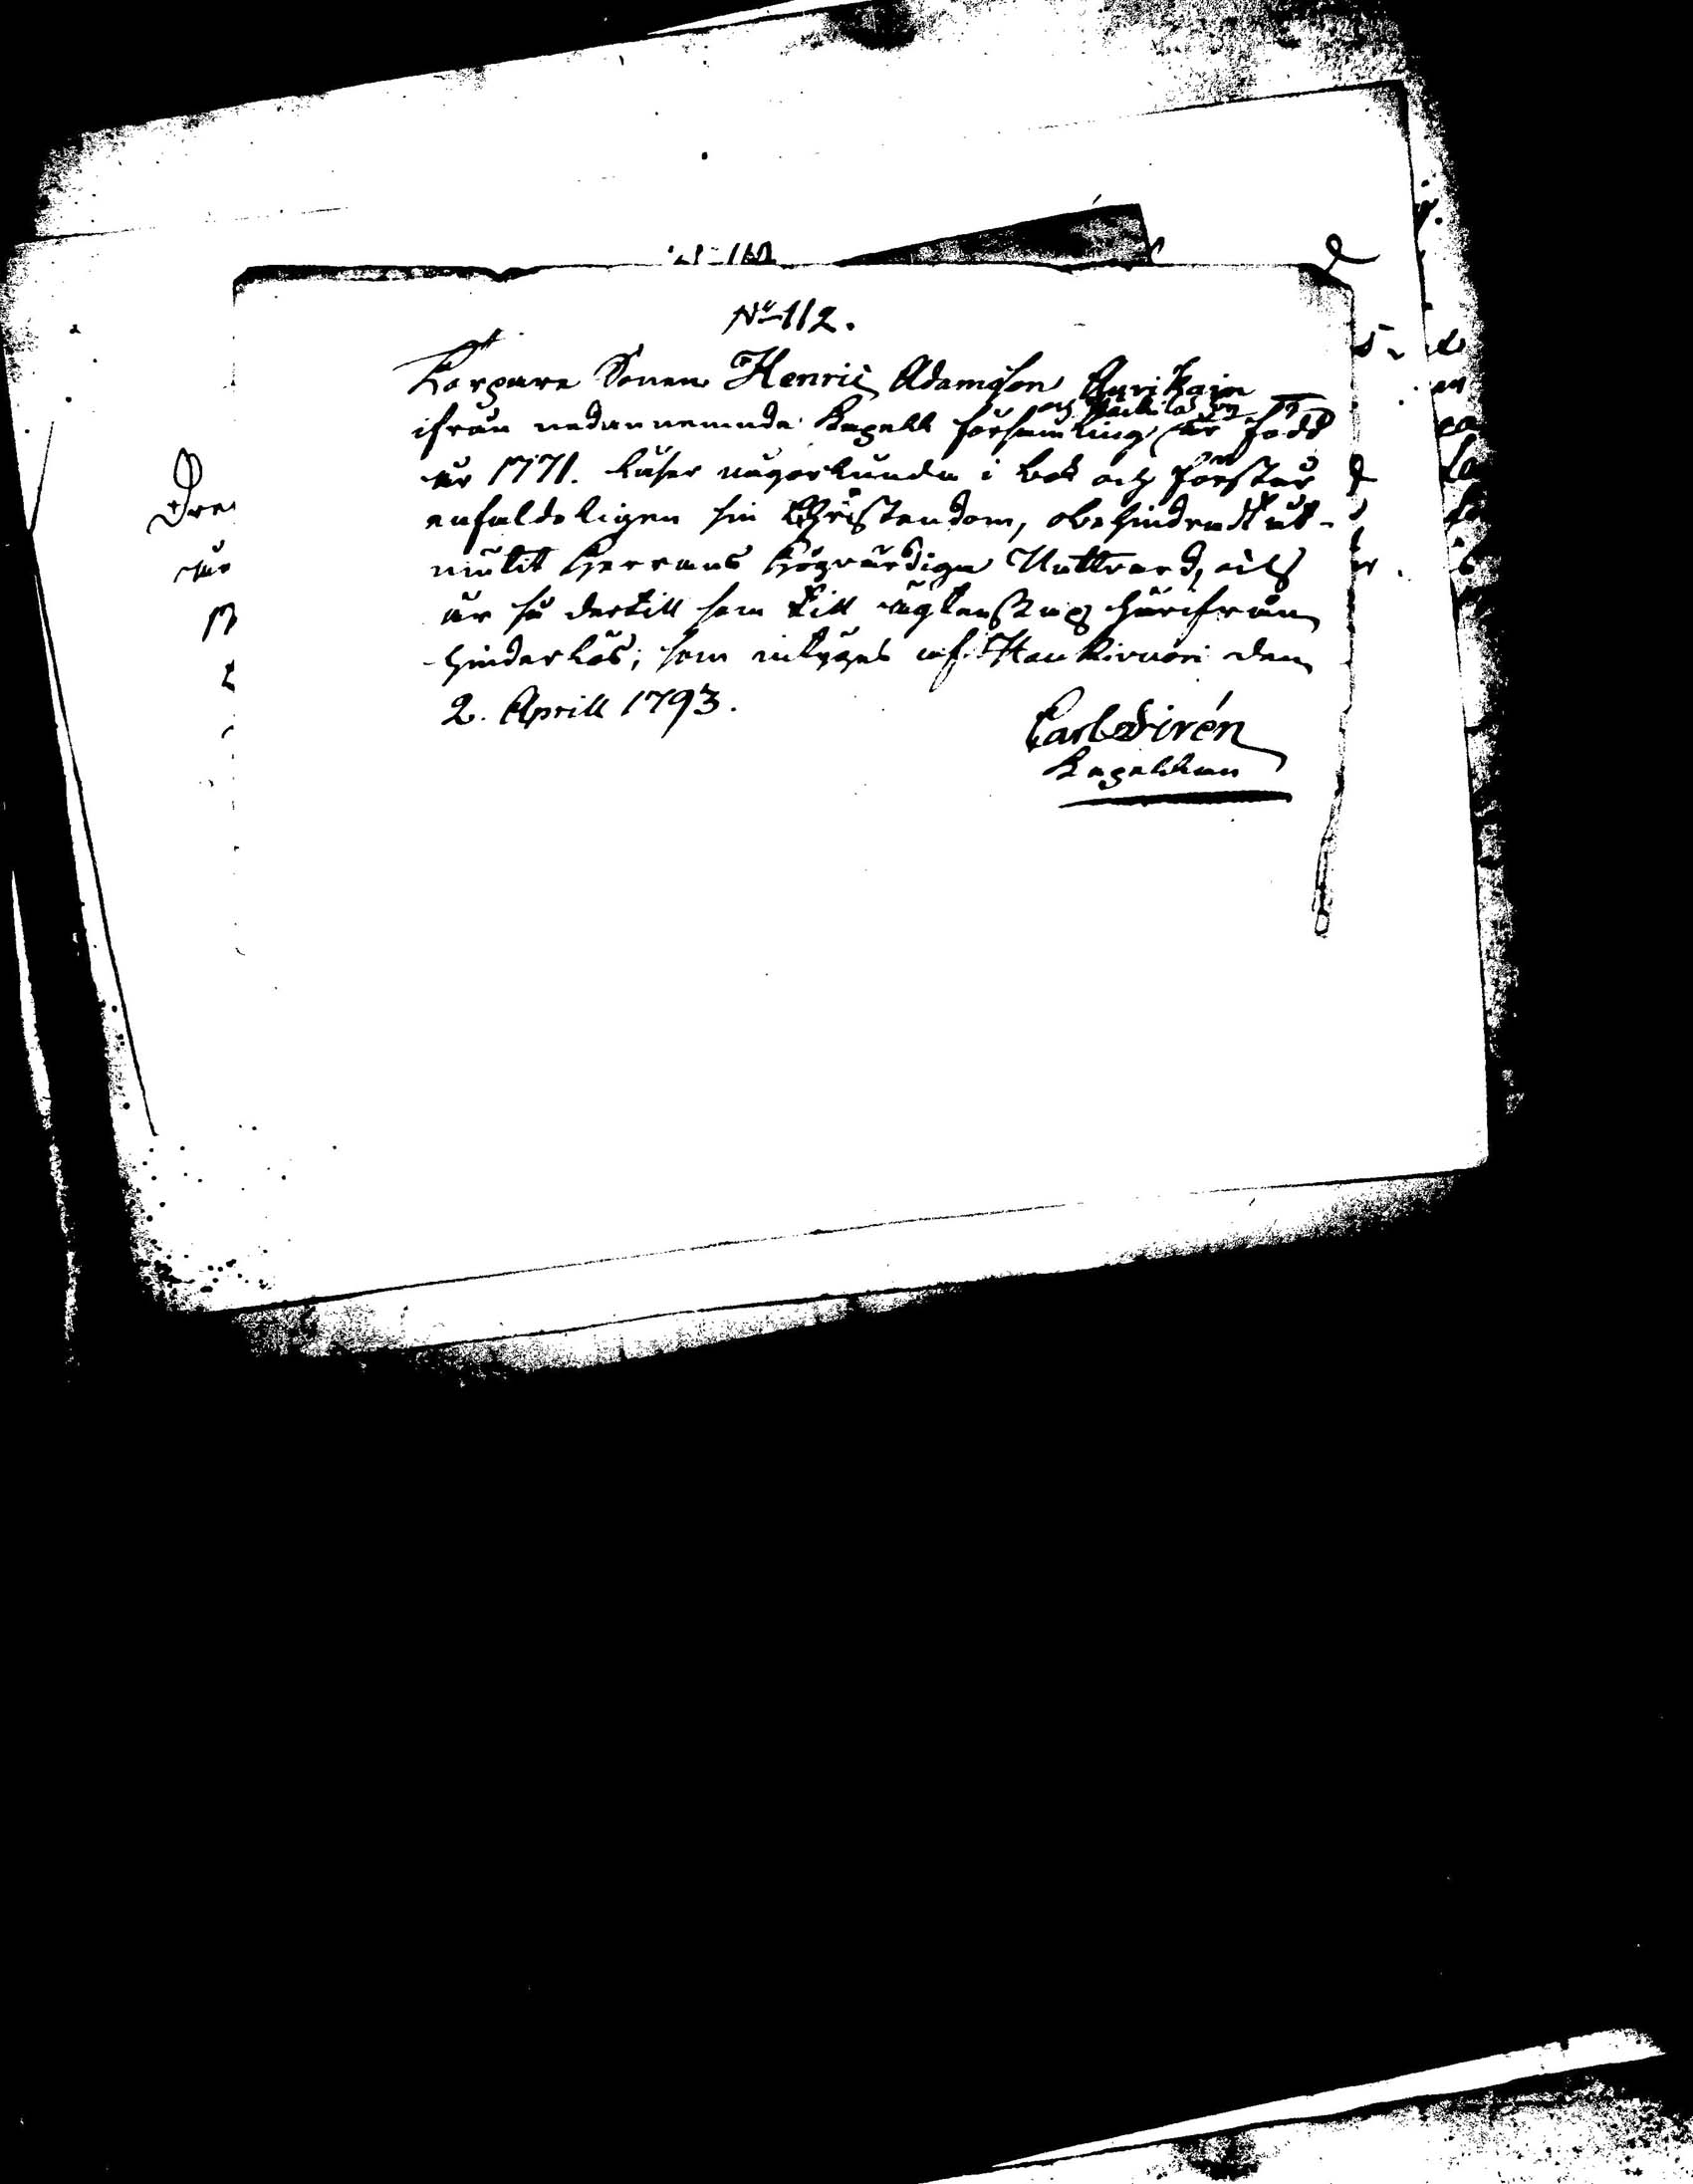 No 112.
Torpare Sonen Henric Adamsson Auvikain
ifrån nedannemnda Kapell församling och by är född
år 1771. läser någorlunda i bok och förstår
enfaldeligen sin Christendom, obehindradt åt-
niutit Herrans Högvärdiga Nattvard, och
är så dertill som till ägtenskap härifrån
hinderlös; som intygas af Haukivuori den
2. Aprill 1793.
Carl Sirén
Kapellan